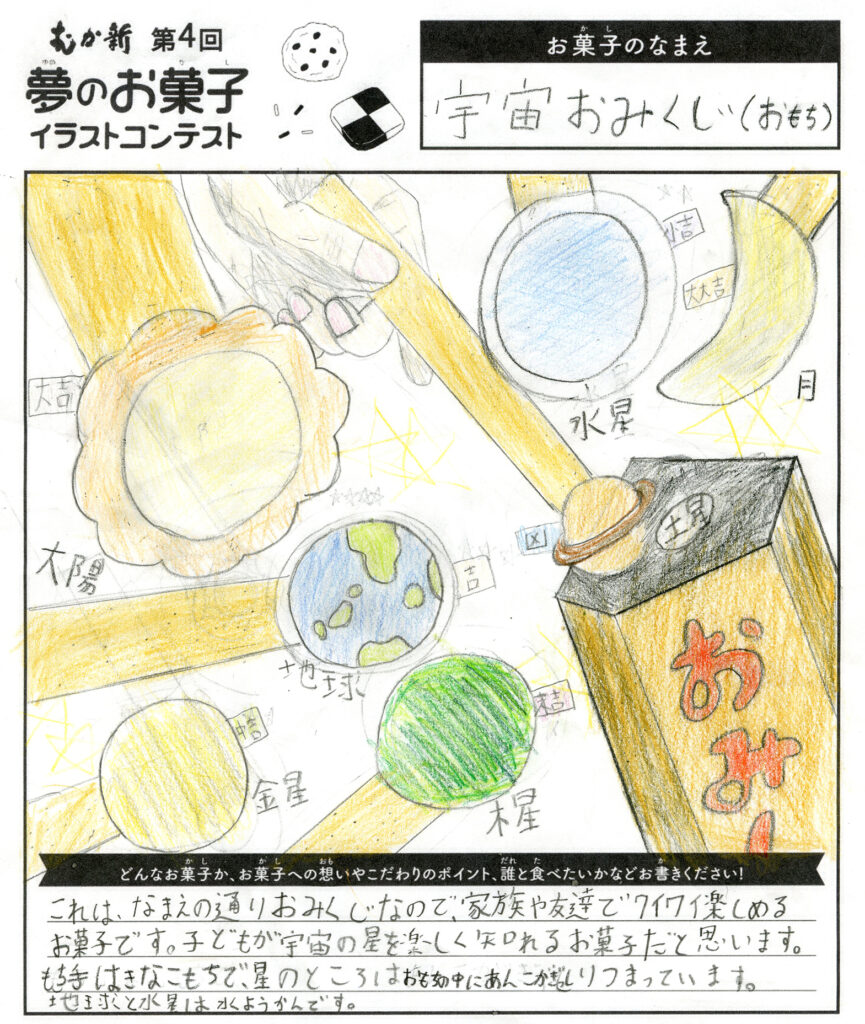 むか新 第4回
夢のお菓子
ゆめ かし
イラストコンテスト
お菓子のなまえ
かし
宇宙おみくじ(おもち)
小吉
大大吉
大吉
水星
月
土星
凶
太陽
吉
地球
中吉
末吉
金星
木星
おみく
どんなお菓子か、お菓子への想いやこだわりのポイント、誰と食べたいかなどお書きください!
かし かし おも だれ た か
これは、なまえの通りおみくじなので、家族や友達でワイワイ楽しめる
お菓子です。子どもが宇宙の星を楽しく知れるお菓子だと思います。
もち手はきなこもちで、星のところはおもちの中にあんこがぎっしりつまっています。
地球と水星は水ようかんです。